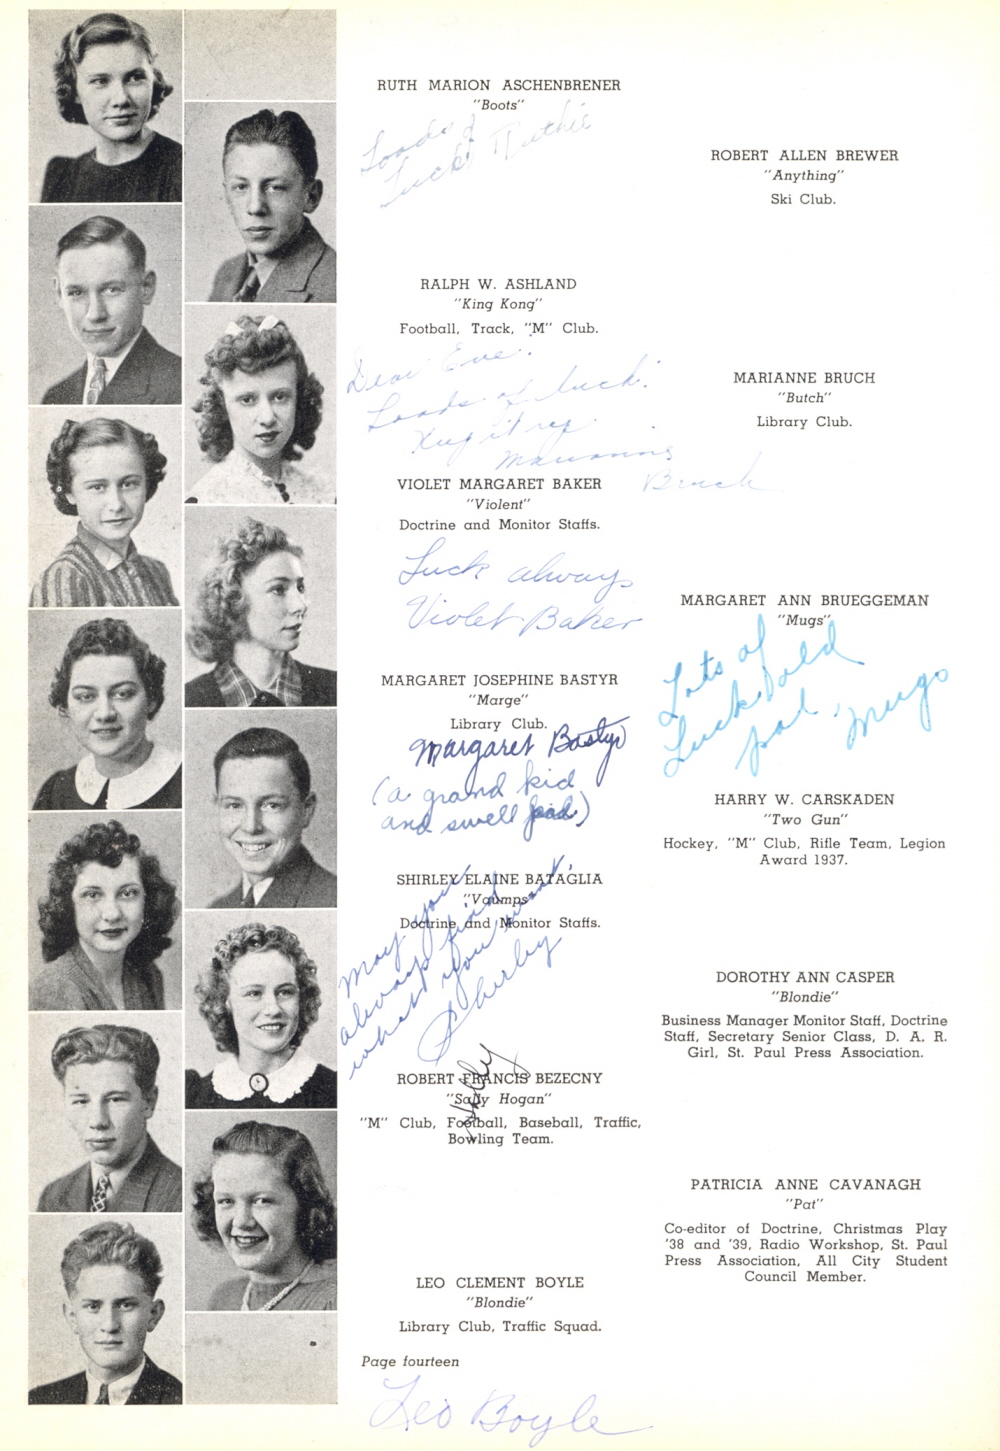 RUTH MARION ASCHENBRENER
"Boots"
Loads of
Luck! Ruthie
ROBERT ALLEN BREWER
"Anything"
Ski Club.
RALPH W. ASHLAND
"King Kong"
Football, Track, "M" Club.
Dear Eve:
Loads of luck!
Keep it up
Marianne
Bruch
MARIANNE BRUCH
"Butch"
Library Club.
VIOLET MARGARET BAKER
"Violent"
Doctrine and Monitor Staffs.
Luck always
Violet Baker
MARGARET ANN BRUEGGEMAN
"Mugs"
Lots of
Luck old
pal, Mugs
MARGARET JOSEPHINE BASTYR
"Marge"
Library Club.
Margaret Bastyr
(a grand kid
and swell pal)
HARRY W. CARSKADEN
"Two Gun"
Hockey, "M" Club, Rifle Team, Legion
Award 1937.
SHIRLEY ELAINE BATAGLIA
"Vaumps"
Doctrine and Monitor Staffs.
May you
always find
what you want!
Shirley
DOROTHY ANN CASPER
"Blondie"
Business Manager Monitor Staff, Doctrine
Staff, Secretary Senior Class, D. A. R.
Girl, St. Paul Press Association.
ROBERT FRANCIS BEZECNY
"Sally Hogan"
"M" Club, Football, Baseball, Traffic,
Bowling Team.
PATRICIA ANNE CAVANAGH
"Pat"
Co-editor of Doctrine, Christmas Play
'38 and '39, Radio Workshop, St. Paul
Press Association, All City Student
Council Member.
LEO CLEMENT BOYLE
"Blondie"
Library Club, Traffic Squad.
Page fourteen
Leo Boyle